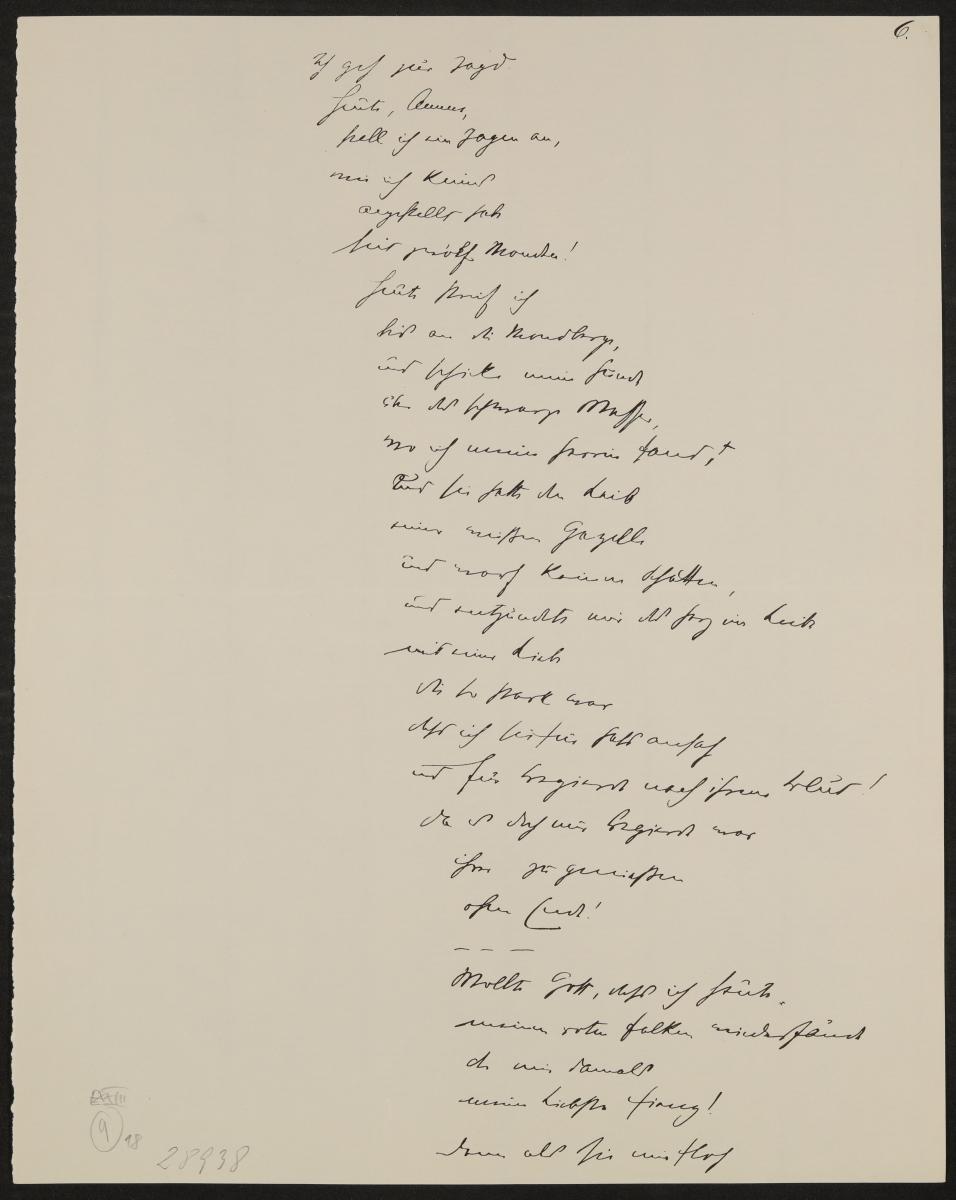 6.
Ich geh zur Jagd.
Heute, Amme,
stell ich ein Jagen an,
wie ich keines
angestellt habe
seit zwölf Monden!
Heute streif ich
bis an die Mondberge,
und schicke meine Hunde
über das schwarze Wasser,
wo ich meine Herrin fand,
Und sie hatte den Leib
einer weißen Gazelle
und warf keinen Schatten,
und entzündete mir das Herz im Leibe
mit einer Liebe
die so stark war
daß ich sie für Haß ansah
und für Begierde nach ihrem Blut!
da es doch nur Begierde war
ihrer zu genießen
ohne Ende!
– – –
Wollte Gott, daß ich heute
meinen roten Falken wiederfände
der mir damals
meine Liebste fing!
denn als sie mir floh
9
18
28938